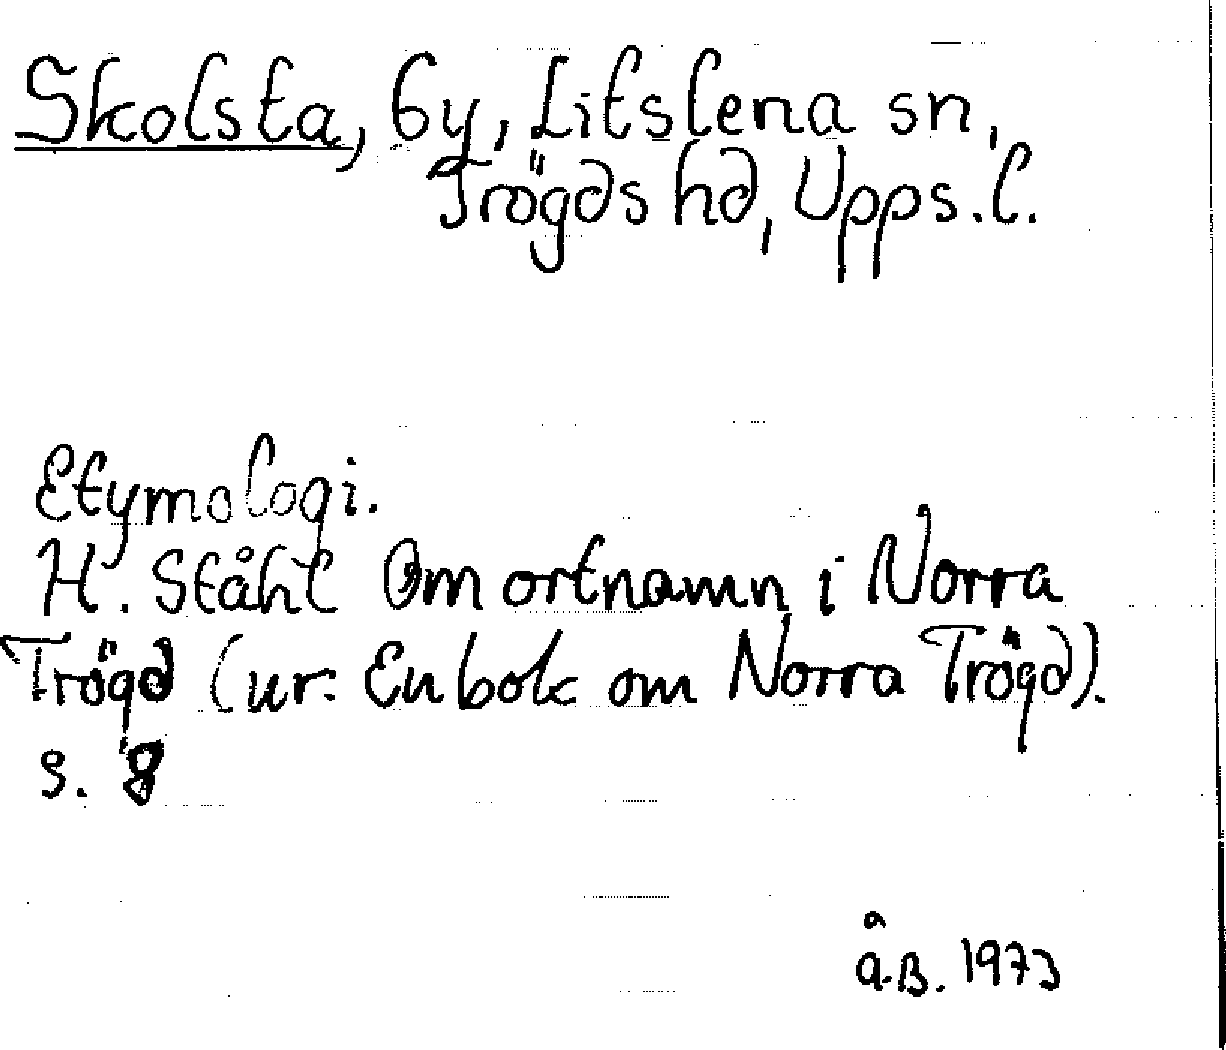 Skolsta, by, Litslena sn,
Trögds hd, Upps. l.
Etymologi.
H. Ståhl Om ortnamn i Norra
Trögd (ur: En bok om Norra Trögd).
s. 8
Å.B. 1973